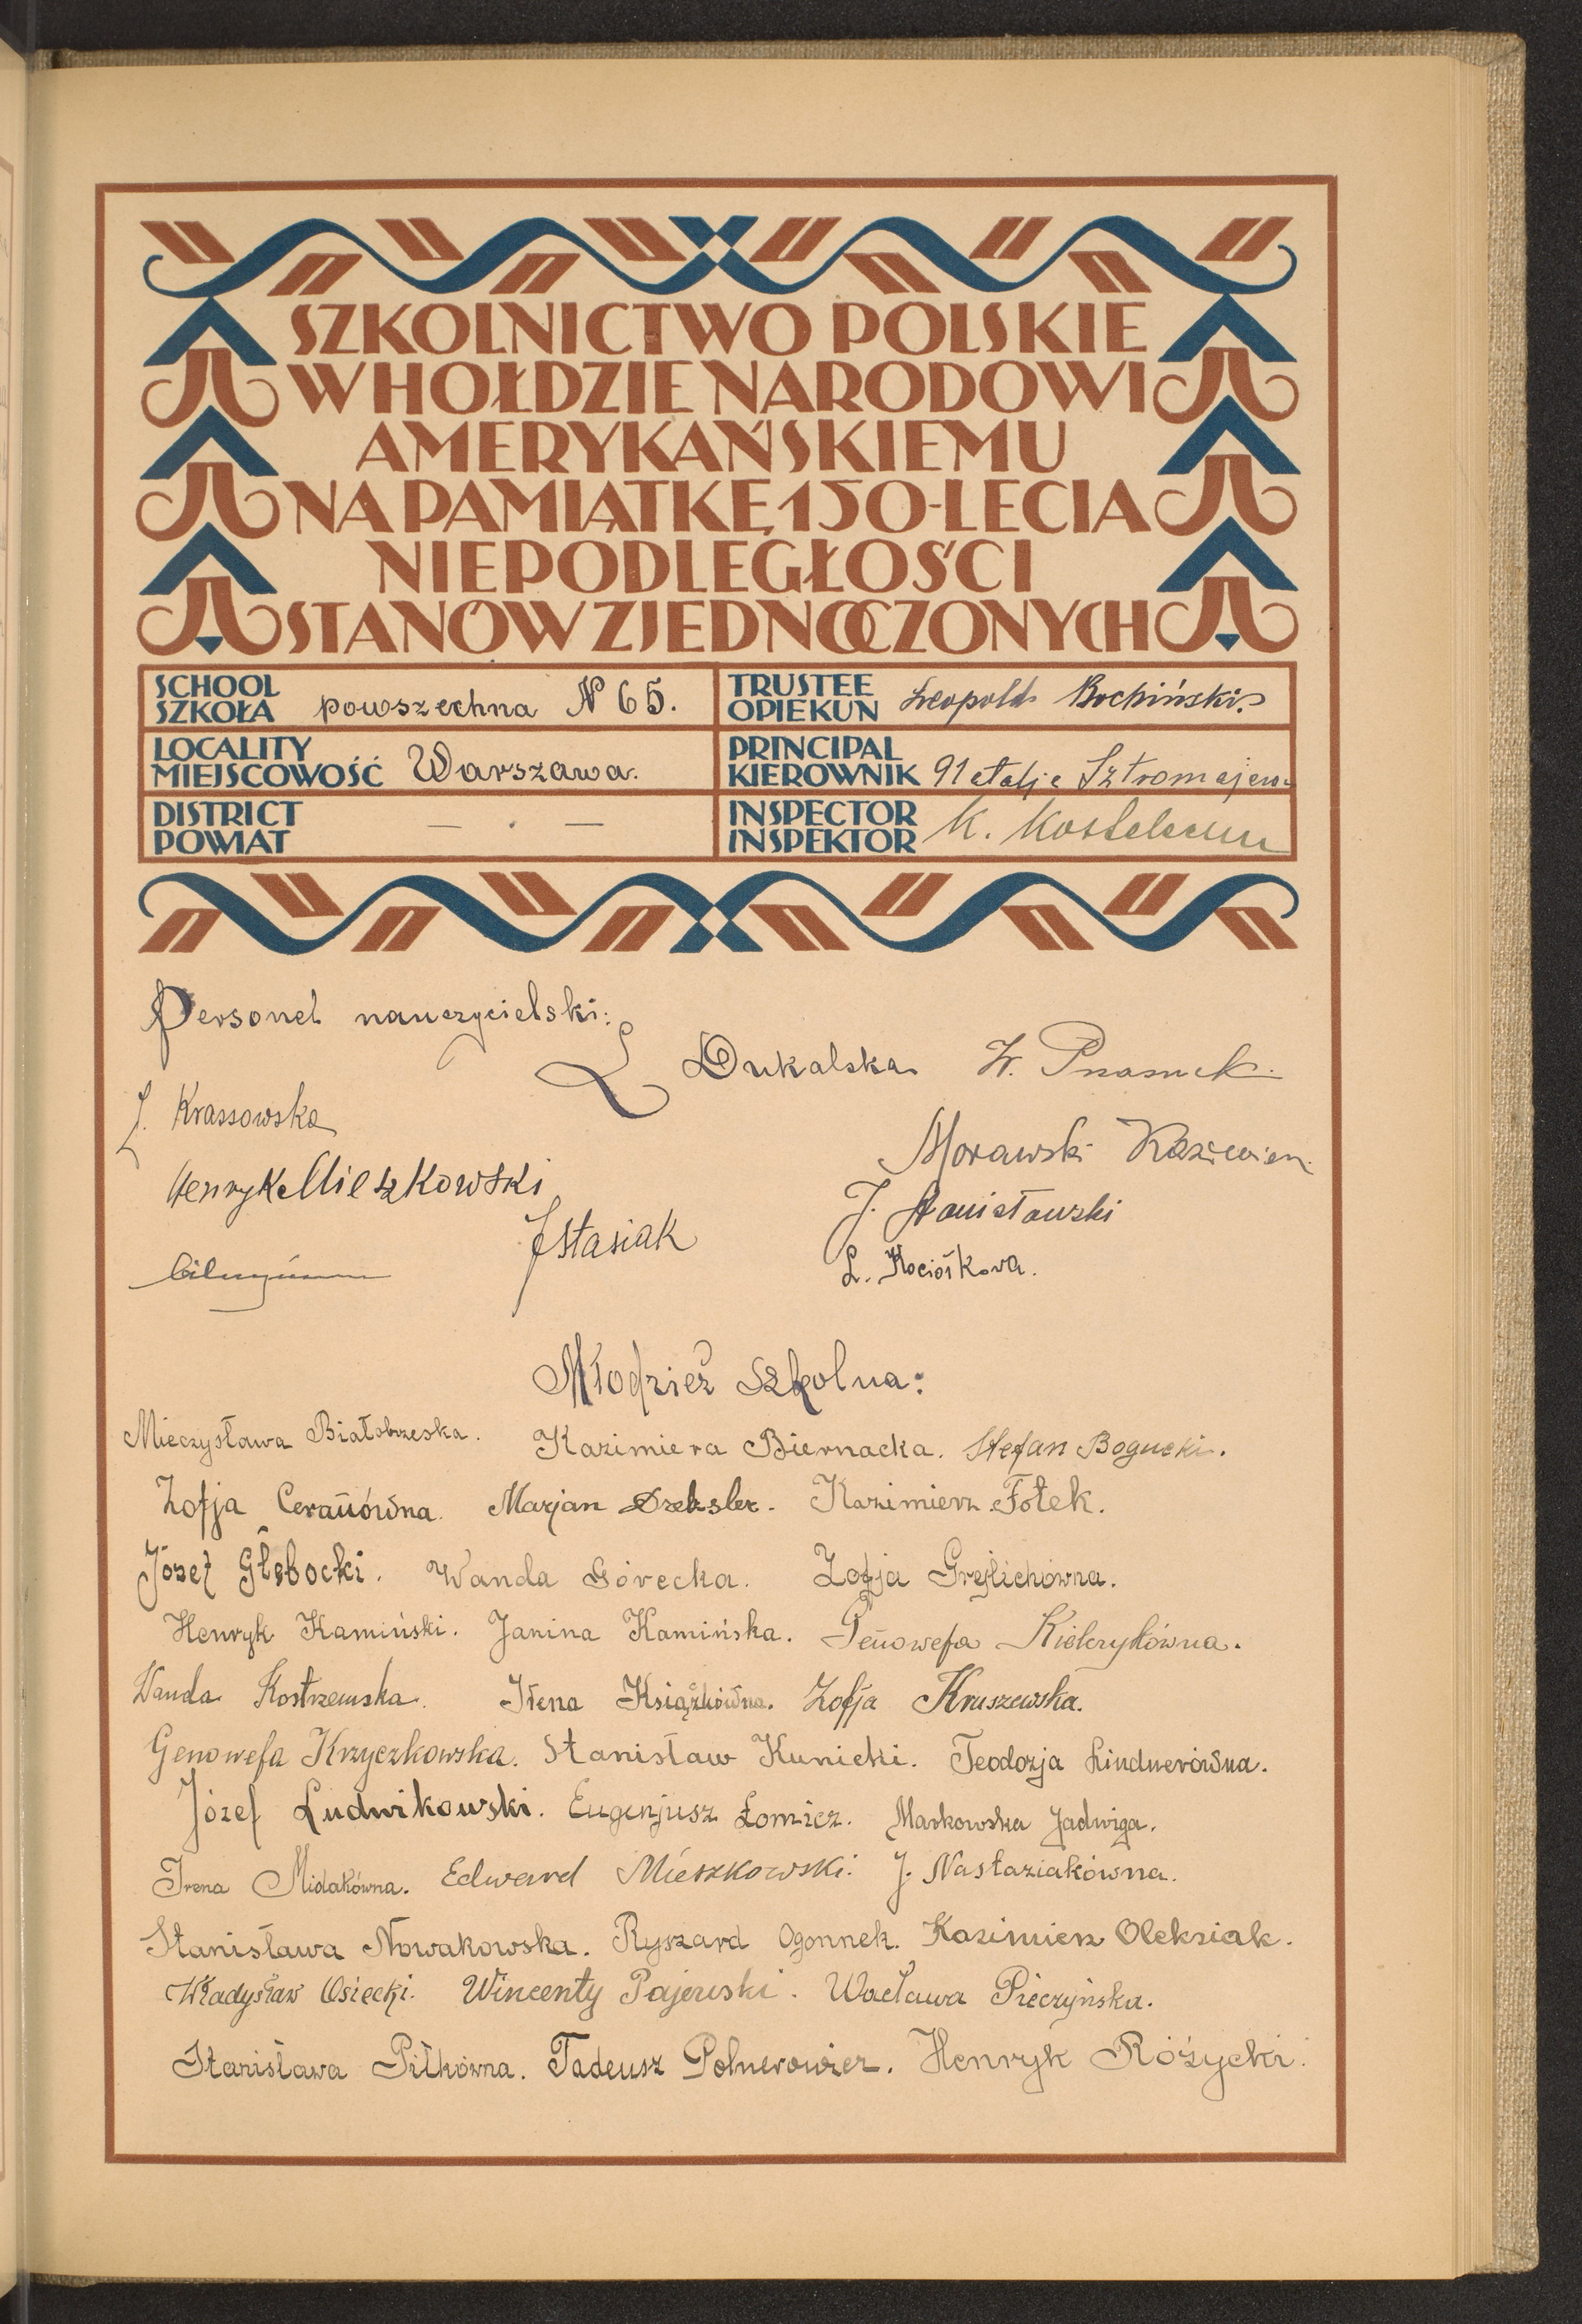 SZKOLNICTWO POLSKIE
W HOŁDZIE NARODOWI
AMERYKAŃSKIEMU
NA PAMIĄTKĘ 150-LECIA
NIEPODLEGŁOŚCI
STANÓW ZJEDNOCZONYCH
SCHOOL
SZKOŁA powszechna N 65.
TRUSTEE
OPIEKUN Leopold
LOCALITY
MIEJSCOWOŚĆ Warszawa.
PRINCIPAL
KIEROWNIK Natalja
DISTRICT
POWIAT — . —
INSPECTOR
INSPEKTOR K.
Personel nauczycielski:
L Dukalska W.
J. Krassowska
Morawski Kazimierz
Henryk Mieszkowski
J. Stanisławski
J Stasiak
L. Kociołkowa.
Młodzież szkolna:
Mieczysława Białobrzeska. Kazimiera Biernacka. Stefan Bogucki.
Zofja Cerańówna. Marjan Dreksler. Kazimierz Fołek.
Józef Głębocki. Wanda Górecka. Zofja Grejlichówna.
Henryk Kamiński. Janina Kamińska. Genowefa Kiełczykówna.
Wanda Kostrzewska. Irena Książkówna. Zofja Kruszewska.
Genowefa Krzyczkowska. Stanisław Kunicki. Teodozja Lindnerówna.
Józef Ludwikowski. Eugenjusz Łomicz. Markowska Jadwiga.
Irena Midakówna. Edward Mieszkowski. J. Nastaziakówna.
Stanisława Nowakowska. Ryszard Ogonnek. Kazimierz Oleksiak.
Władysław Osiecki. Wincenty Pajewski. Wacława Pieczyńska.
Stanisława Piłkówna. Tadeusz Polnerowicz. Henryk Różycki.